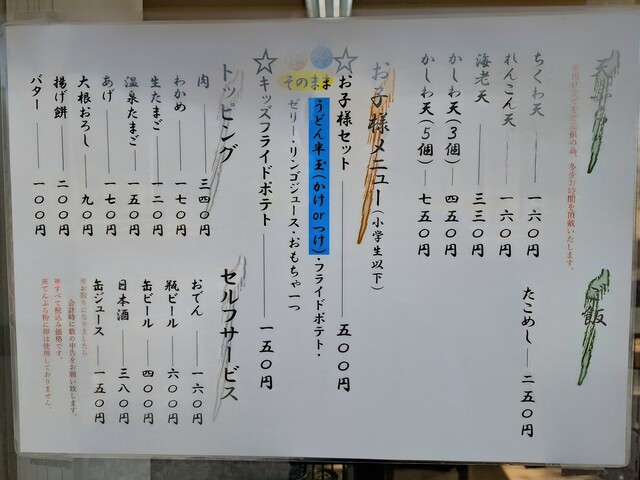 天
※揚げたてをご提供の為、多少お時間を頂戴いたします。
ちくわ天 一六〇円
れんこん天 一六〇円
海老天 三三〇円
かしわ天(3個) 四五〇円
かしわ天(5個) 七五〇円
飯
たこめし 二五〇円
お子様メニュー(小学生以下)
☆お子様セット 五〇〇円
うどん半玉(かけorつけ)・フライドポテト・
ゼリー・リンゴジュース・おもちゃ一つ
そのまま
☆キッズフライドポテト 一五〇円
トッピング
肉 三四〇円
わかめ 一七〇円
生たまご 一二〇円
温泉たまご 一五〇円
あげ 一七〇円
大根おろし 九〇円
揚げ餅 二〇〇円
バター 一〇〇円
セルフサービス
おでん 一六〇円
瓶ビール 六〇〇円
缶ビール 四〇〇円
日本酒 三八〇円
缶ジュース 一五〇円
※お取りになりましたら
会計時に数の申告をお願い致します。
※すべて税込み価格です。
※てんぷら粉に卵は使用しておりません。